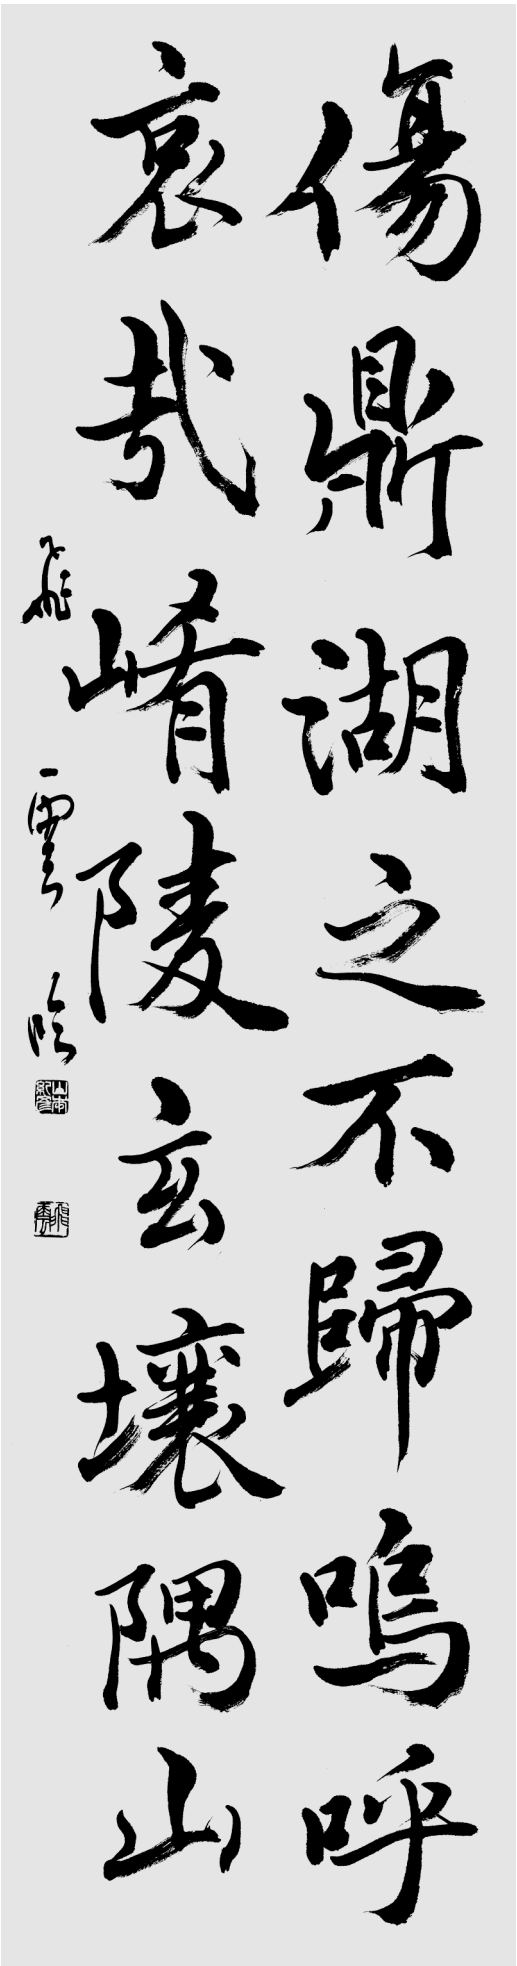 傷鼎湖之不歸嗚呼
哀哉崤陵玄壤隅山
飛雲臨